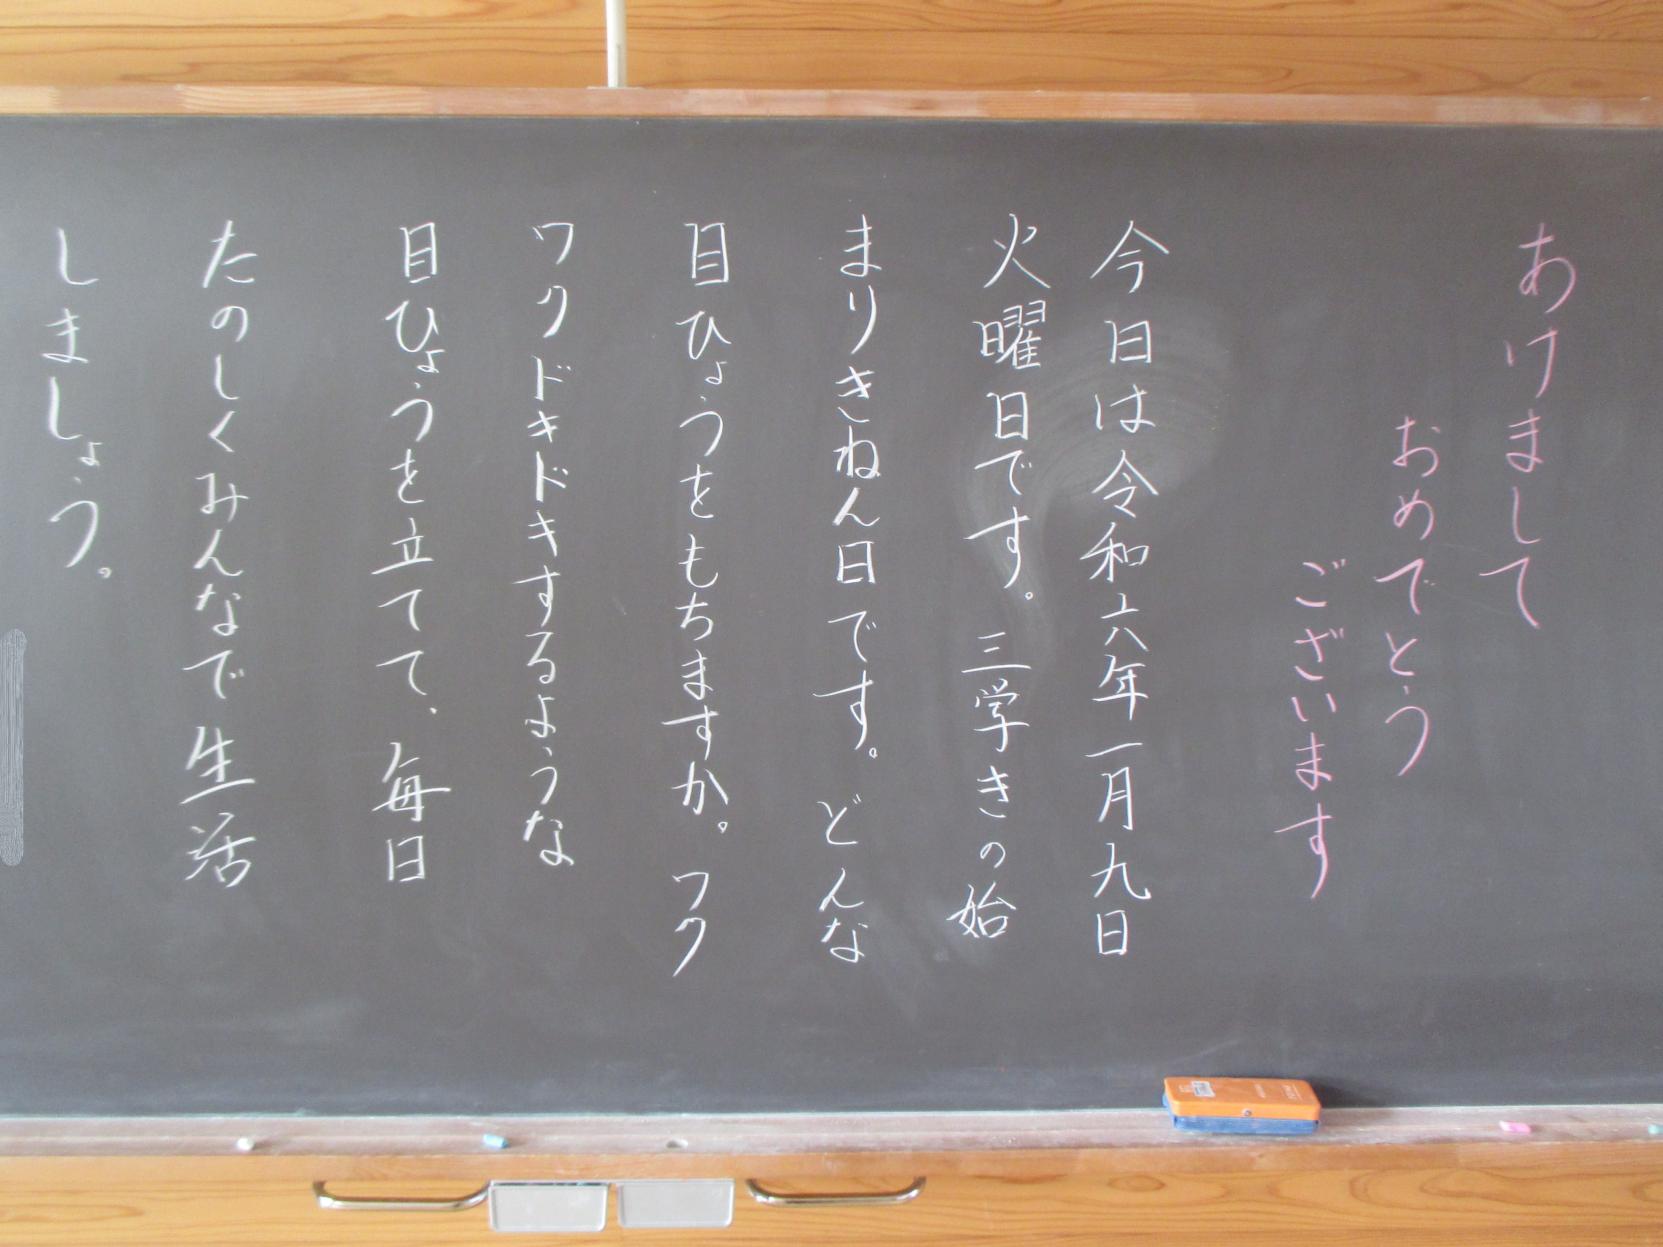 あけまして
おめでとう
ございます
今日は令和六年一月九日
火曜日です。三学きの始
まりきねん日です。どんな
目ひょうをもちますか。ワク
ワクドキドキするような
目ひょうを立てて、毎日
たのしくみんなで生活
しましょう。